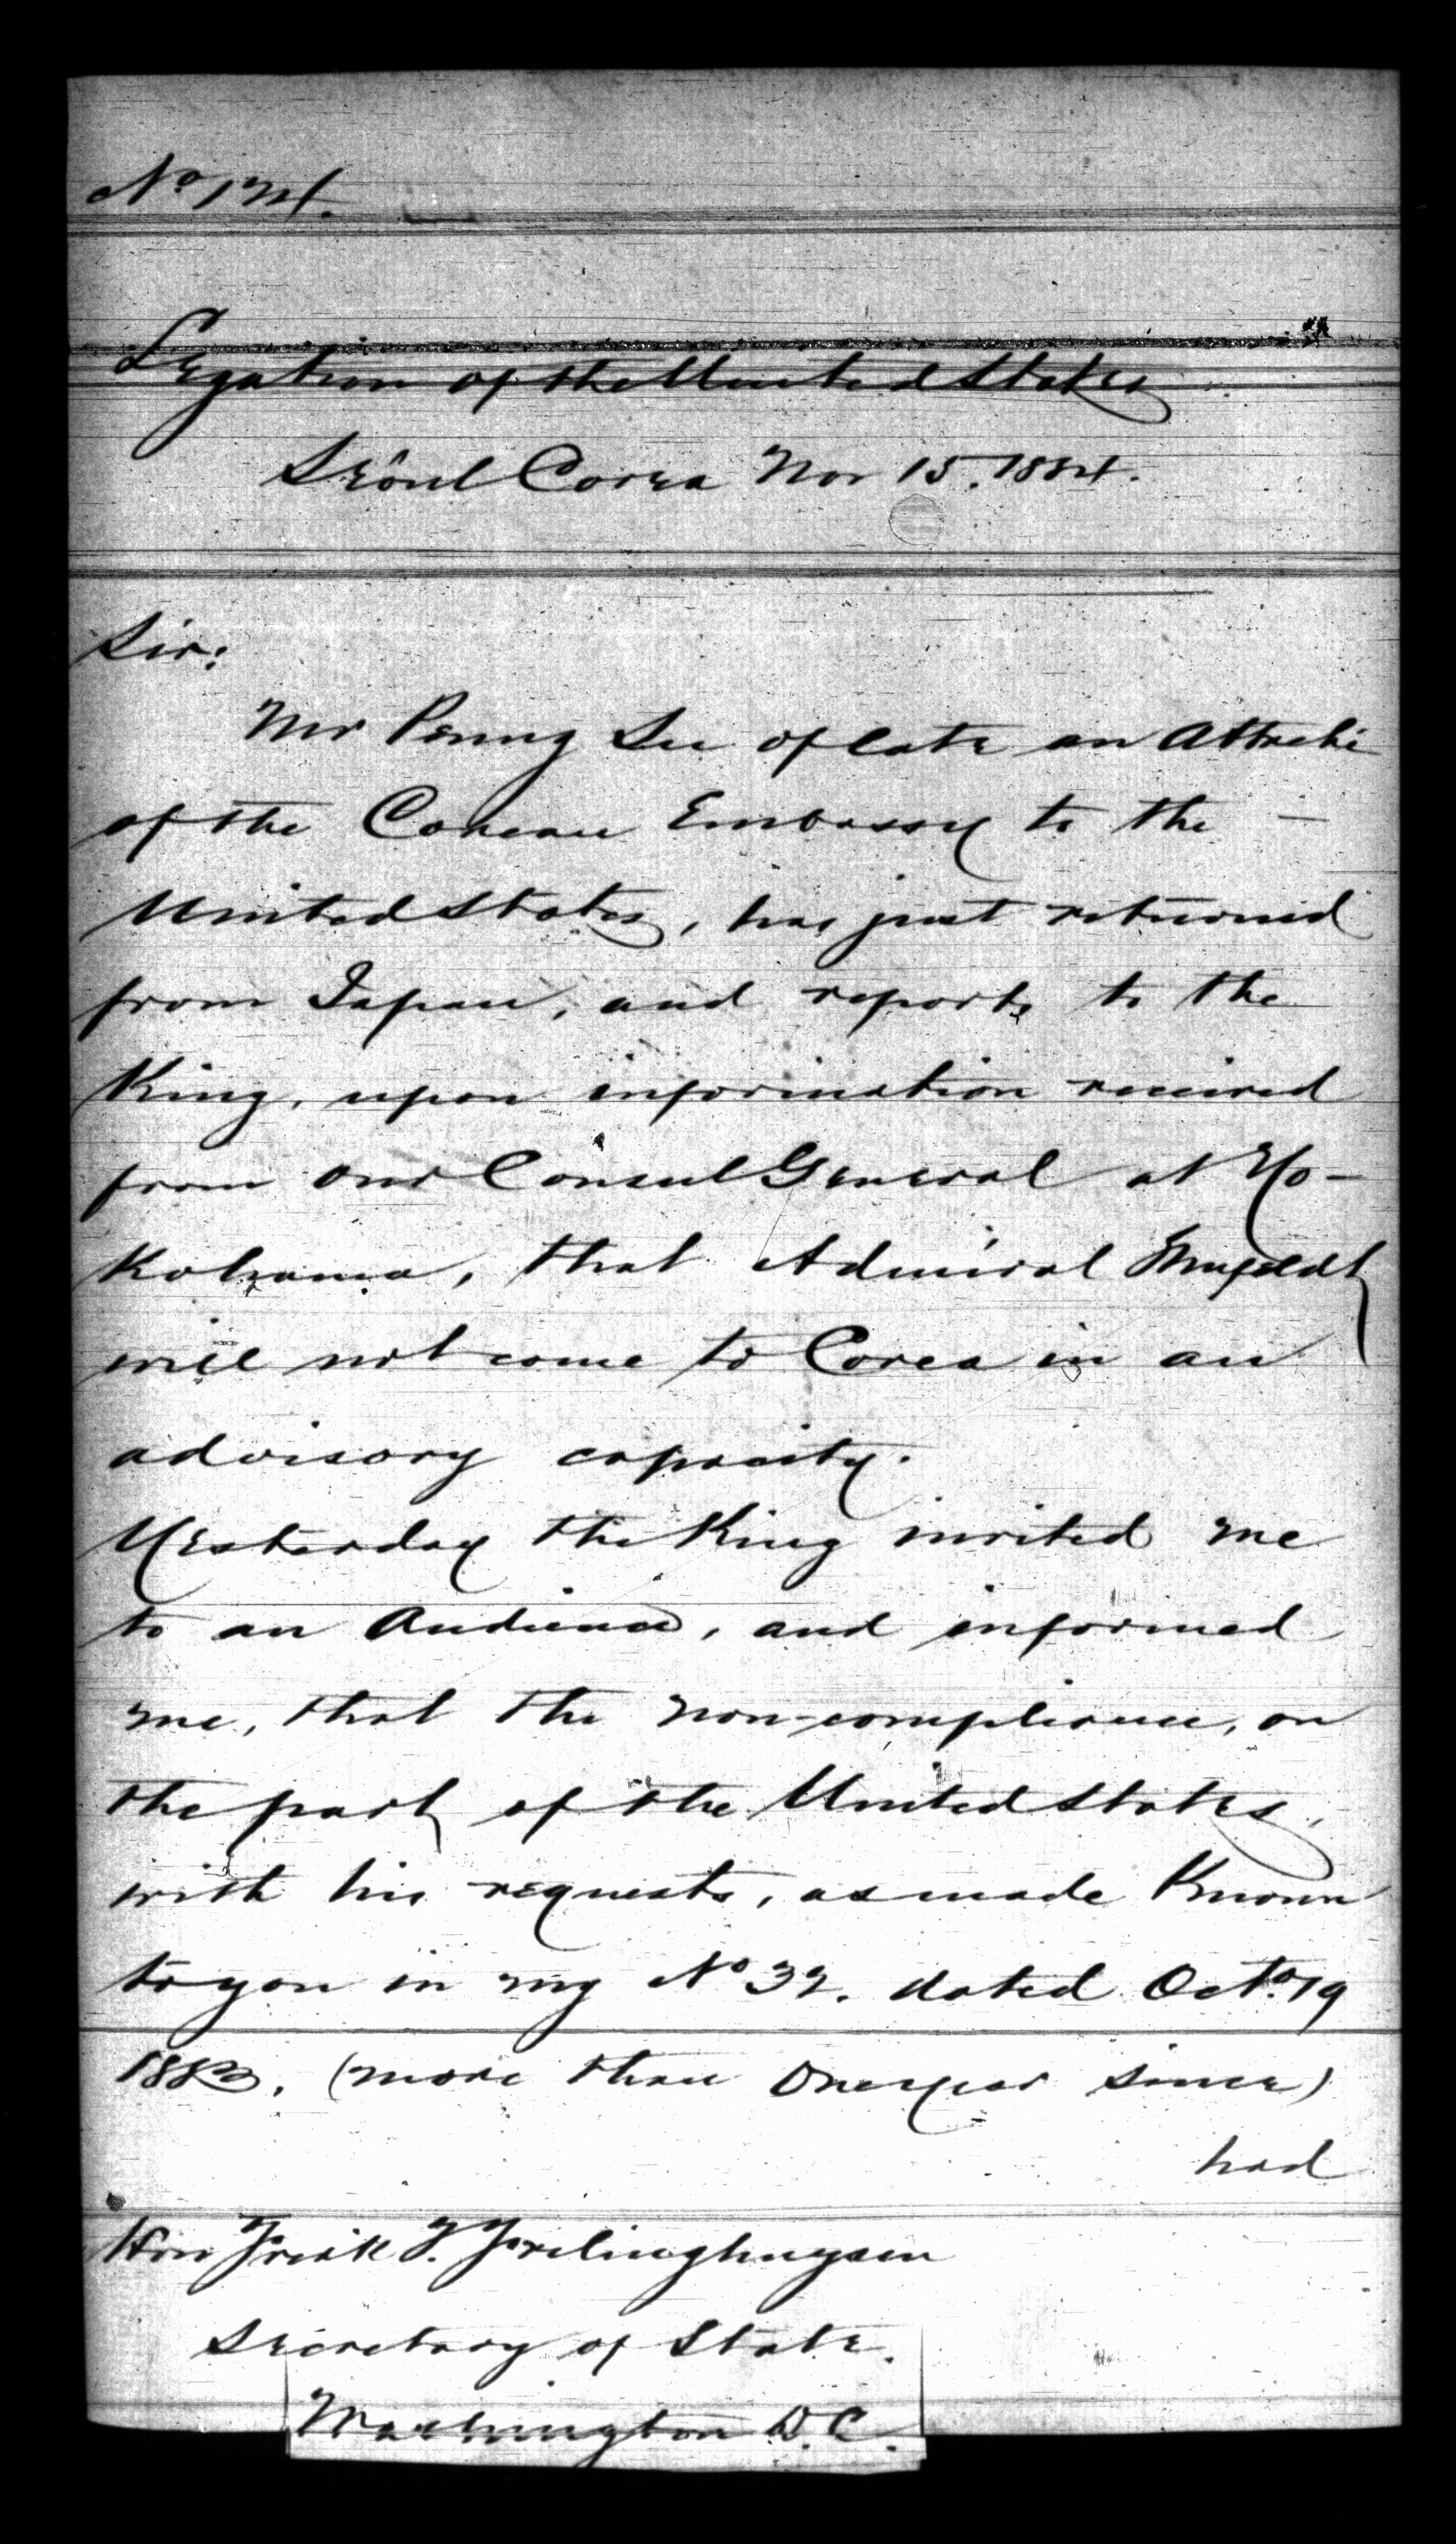 No 124.
Legation of the United States
Sëoul Corea Nov 15. 1884.
Sir:
Mr Penng Su of late an Attaché
of the Corean Embassy to the —
United States, has just returned
from Japan, and reports to the
King, upon information received
from our Consul General at Yo-
kohama, that Admiral Shufeldt
will not come to Corea in an
advisory capacity.
Yesterday the King invited me
to an Audience, and informed
me, that the non-compliance, on
the part of the United States,
with his requests, as made known
to you in my No 32. dated Octo. 19
1883. (more than One year since)
had
Hon Fredk T. Frelinghuysen
Secretary of State.
Washington D.C.